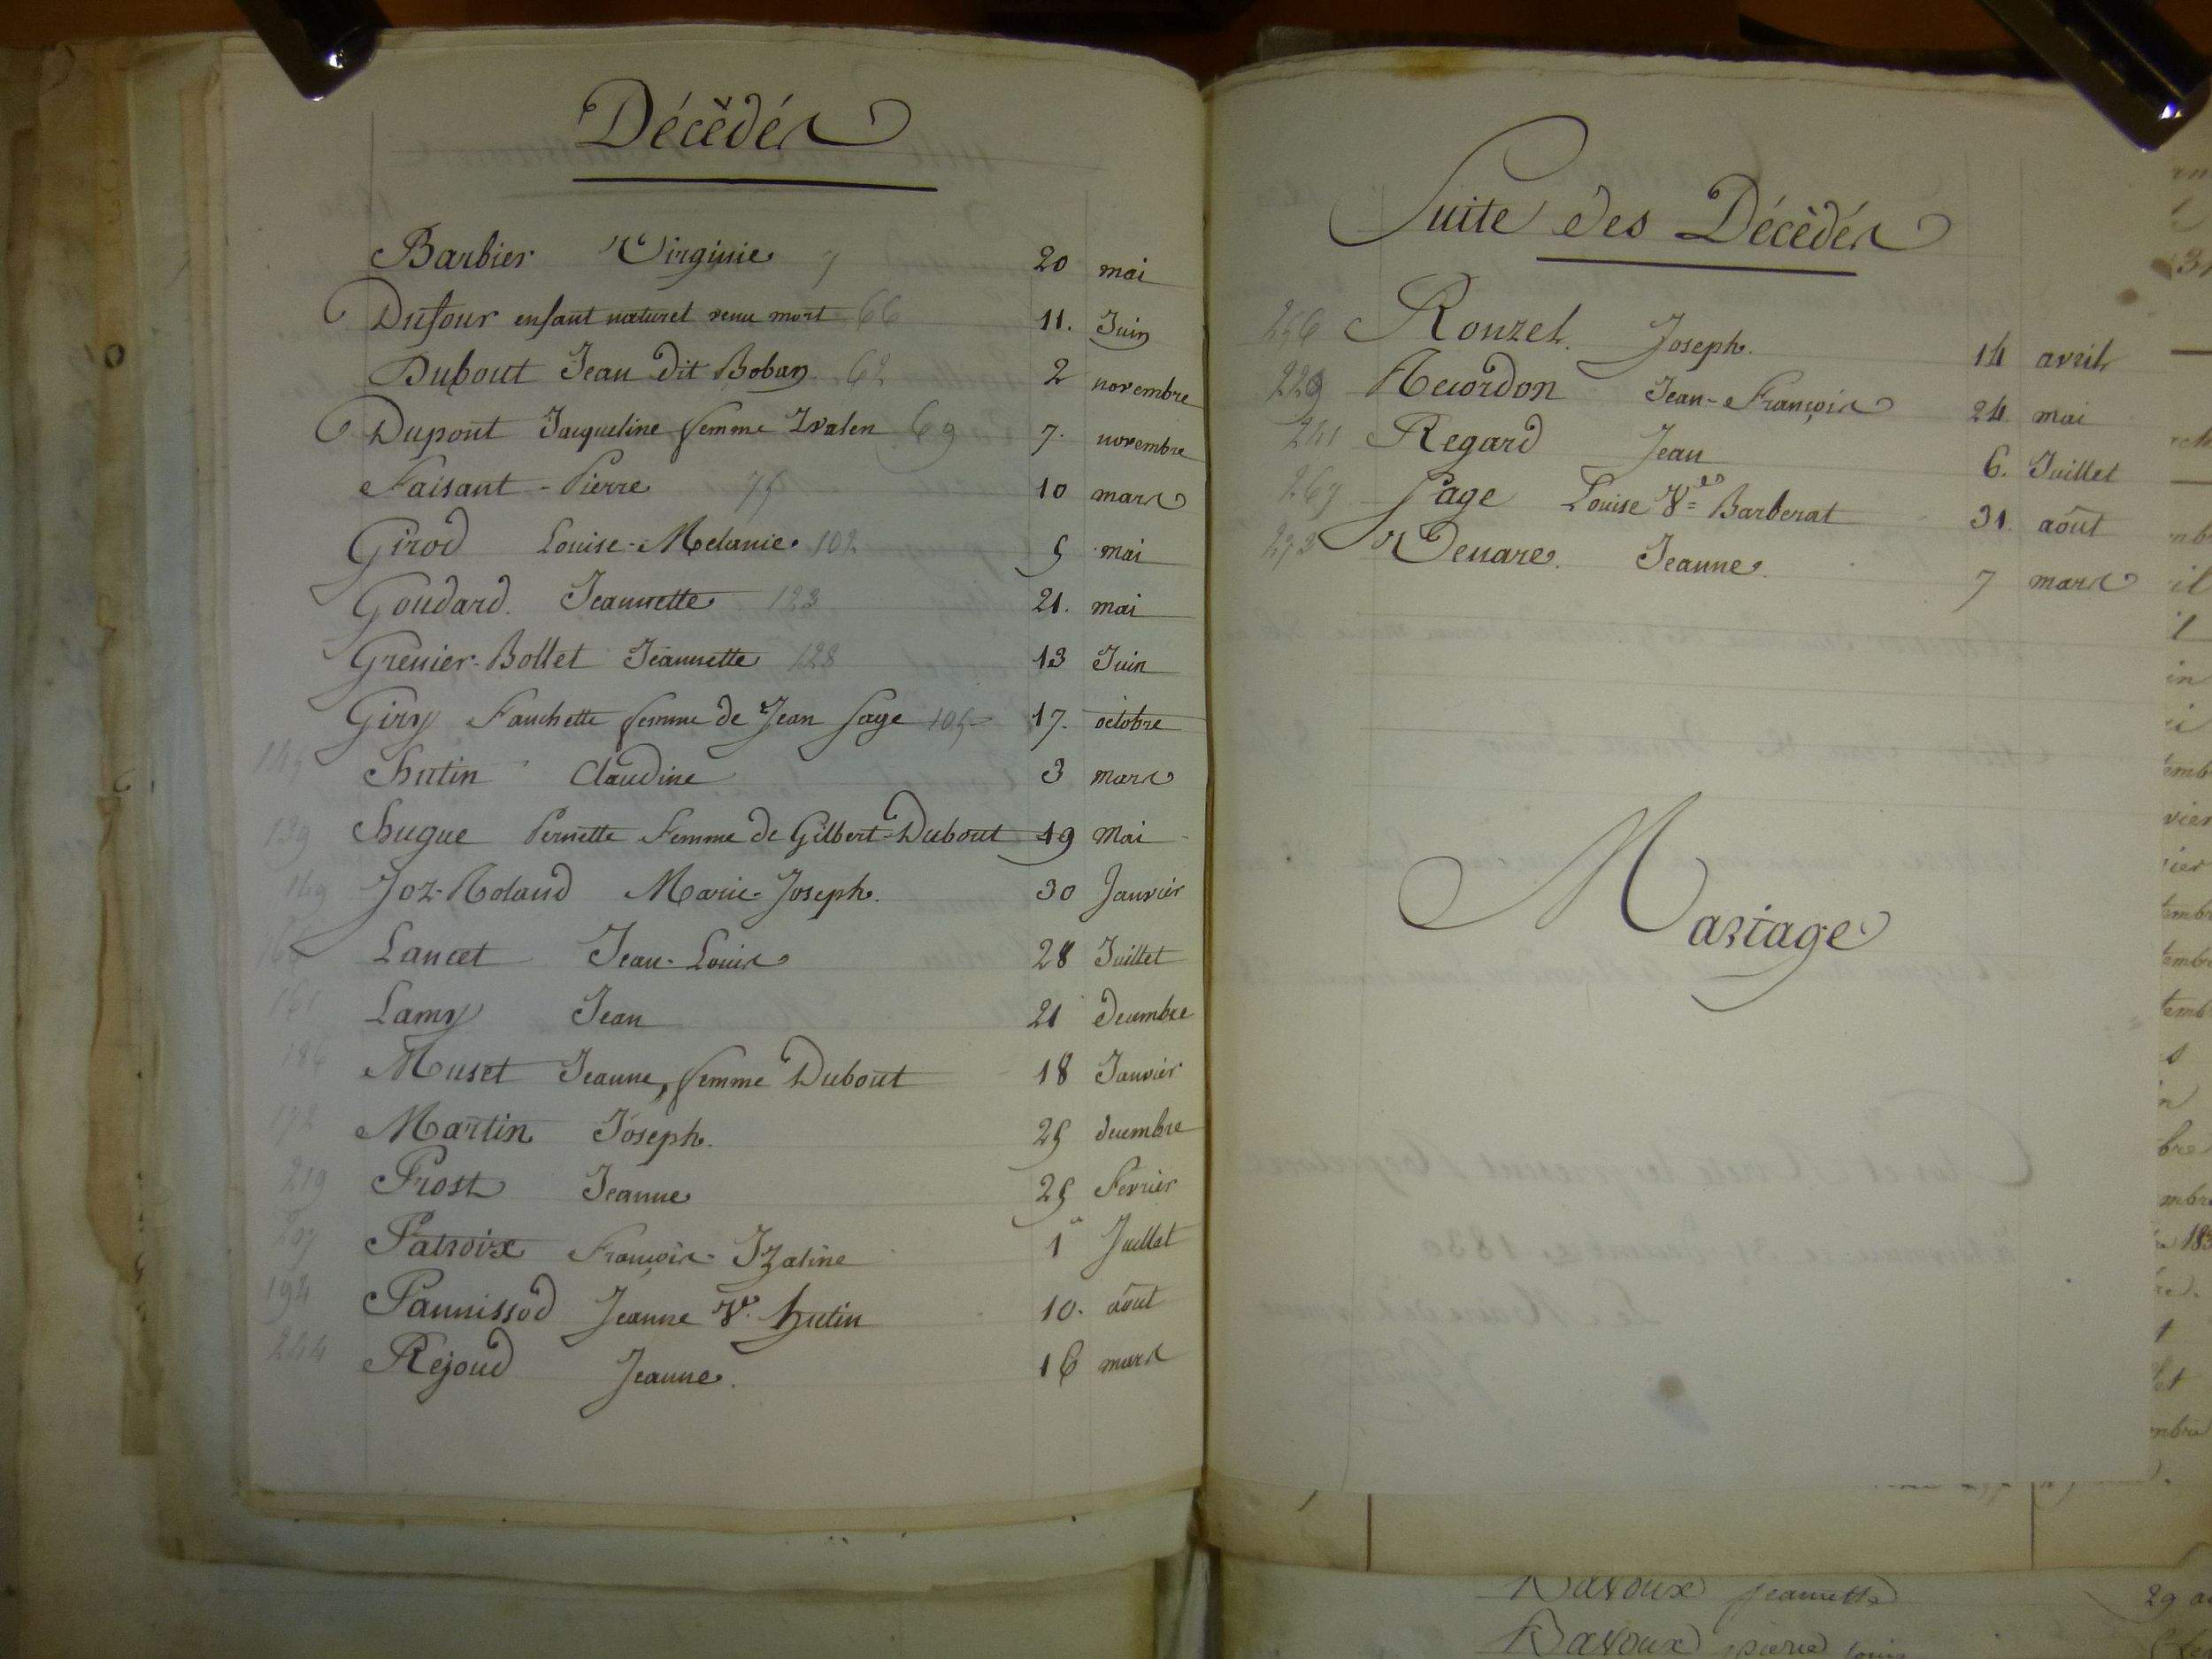 Décèdés
Barbier Virginie 7 20 mai
Dufour enfant naturel venu mort 66 11. Juin
Dubout Jean dit Boban 62 2 novembre
Dupont Jacqueline femme Ivalen 69 7. novembre
Faisant - Pierre 75 10 mars
Girod Louise-Melanie. 102 5 mai
Goudard. Jeannette 123 21. mai
Grenier-Bollet Jeannette 128 13 Juin
Giry Fanchette femme de Jean Sage 105 17. octobre
145 hutin Claudine 3 mars
139 hugue Pernette Femme de Gilbert Dubout 19 Mai
149 Joz-Roland Marie-Joseph. 30 Janvier
Lancet Jean-Louis 28 Juillet
161 Lamy Jean 21 decembre
186 Muset Jeanne, femme Dubout 18 Janvier
172 Martin Joseph. 25 decembre
219 Prost Jeanne 25 Fevrier
207 Patroix François-Izaline 1er Juillet
194 Pannissod Jeanne Ve. hutin 10. août
244 Rejoud Jeanne. 16 mars
Suite des Décèdés
256 Ronzel. Joseph. 14 avril
229 Recordon Jean-François 24. mai
241 Regard Jean 6. Juillet
267 Sage Louise Ve Barberat 31. août
273 Venare. Jeanne. 7 mars
Mariage
Davoux jeannette 29
Davoux pierre louis